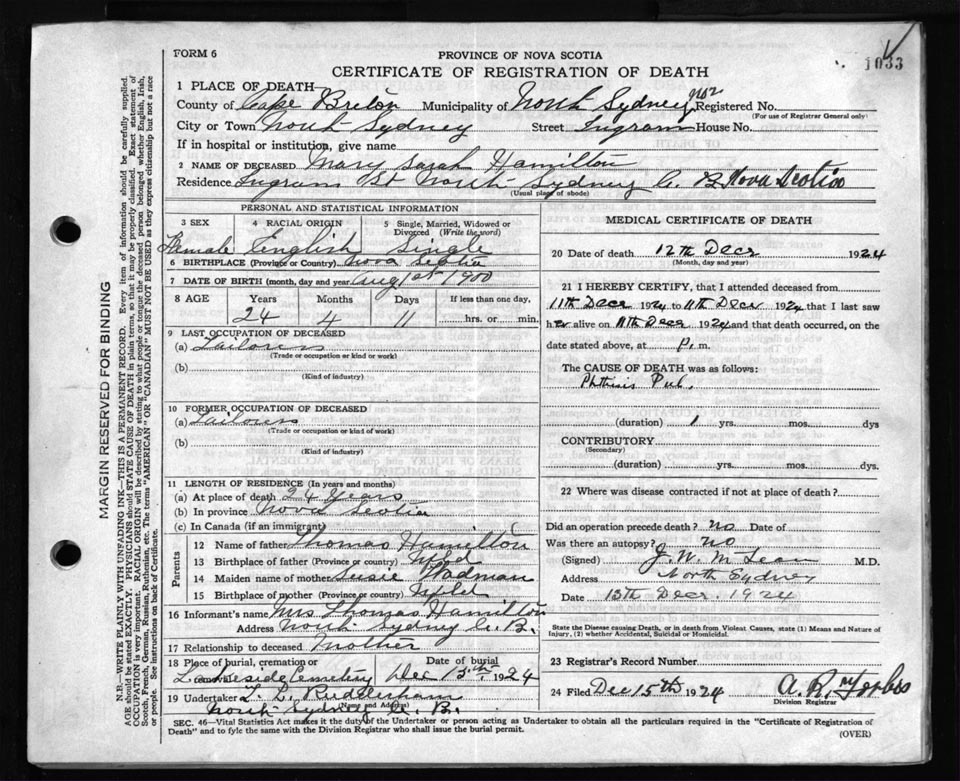 FORM 6
PROVINCE OF NOVA SCOTIA
CERTIFICATE OF REGISTRATION OF DEATH
1033
1 PLACE OF DEATH—
County of Cape Breton Municipality of North Sydney Registered No.
(For use of Registrar General only)
City or Town North Sydney Street Ingram House No.
If in hospital or institution, give name
2 NAME OF DECEASED Mary Sarah Hamilton
Residence Ingram St North Sydney C. B. Nova Scotia
(Usual place of abode)
PERSONAL AND STATISTICAL INFORMATION
3 SEX 4 RACIAL ORIGIN 5 Single, Married, Widowed or Divorced (Write the word)
Female English Single
6 BIRTHPLACE (Province or Country) Nova Scotia
7 DATE OF BIRTH (month, day and year) Aug 1st 1900
8 AGE Years Months Days If less than one day,
24 4 11 hrs. or min.
9 LAST OCCUPATION OF DECEASED
(a) Tailoress
(Trade or occupation or kind or work)
(b)
(Kind of industry)
10 FORMER OCCUPATION OF DECEASED
(a) Tailoress
(Trade or occupation or kind of work)
(b)
(Kind of industry)
11 LENGTH OF RESIDENCE (In years and months)
(a) At place of death 24 Years
(b) In province Nova Scotia
(c) In Canada (if an immigrant)
Parents
12 Name of father Thomas Hamilton
13 Birthplace of father (Province or country) Nfld
14 Maiden name of mother Susie Wadman
15 Birthplace of mother (Province or country) Nfld
16 Informant's name Mrs Thomas Hamilton
Address North Sydney C. B.
17 Relationship to deceased Mother
18 Place of burial, cremation or Date of burial
Lakeside Cemetery Dec 15th 1924
19 Undertaker L. L. Rudderham
(Name and Address)
North Sydney C. B.
MEDICAL CERTIFICATE OF DEATH
20 Date of death 12th Decr 1924
(Month, day and year)
21 I HEREBY CERTIFY, that I attended deceased from
11th Decr 1924 to 11th Decr 1924 that I last saw
her alive on 11th Decr 1924 and that death occurred, on the
date stated above, at p. m.
The CAUSE OF DEATH was as follows:
Phthisis Pul.
(duration) 1 yrs. mos. dys
CONTRIBUTORY
(Secondary)
(duration) yrs. mos. dys.
22 Where was disease contracted if not at place of death?
Did an operation precede death? no Date of
Was there an autopsy? no
(Signed) J. W. McLean M.D.
Address North Sydney
Date 13th Decr. 1924
State the Disease causing Death, or in death from Violent Causes, state (1) Means and Nature of
Injury, (2) whether Accidental, Suicidal or Homicidal.
23 Registrar's Record Number
24 Filed Dec 15th 1924 A. R. Forbes
Division Registrar
SEC. 46—Vital Statistics Act makes it the duty of the Undertaker or person acting as Undertaker to obtain all the particulars required in the "Certificate of Registration of
Death" and to fyle the same with the Division Registrar who shall issue the burial permit.
(OVER)
MARGIN RESERVED FOR BINDING
N.B.—WRITE PLAINLY WITH UNFADING INK—THIS IS A PERMANENT RECORD. Every item of information should be carefully supplied.
AGE should be stated EXACTLY. PHYSICIANS should STATE CAUSE OF DEATH in plain terms, so that it may be properly classified. Exact statement of
OCCUPATION is very important. RACIAL ORIGIN will be described by stating to what people or tongue the deceased person belonged whether English, Irish,
Scotch, French, German, Russian, Ruthenian, etc. The terms "AMERICAN" OR "CANADIAN" MUST NOT BE USED as they express citizenship but not a race
or people. See instructions on back of Certificate.